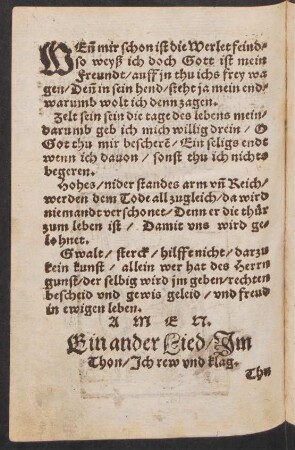 WEñ mir schon ist die Werlet feind/
so weyß ich doch Gott ist mein
Freundt/auff jn thu ichs frey wa
gen/Deñ in sein hend/steht ja mein end/
warumb wolt ich denn zagen.
Zelt sein sein die tage des lebens mein/
darumb geb ich mich willig drein/O
Got thu mir bescherẽ/Ein seligs endt
wenn ich dauon/sonst thu ich nichts
begeren.
Hohes/nider standes arm vñ Reich/
werden dem Tode all zugleich/da wird
niemandt verschonet/Denn er die thür
zum leben ist/Damit vns wird ge-
lohnet.
Gwalt/sterck/hilfft nicht/darzu
kein kunst/allein wer hat des Herrn
gunst/der selbig wird jm geben/rechten
bescheid vnd gewis geleid/vnd freud
in ewigen leben.
A M E N.
Ein ander Lied/Im
Thon/Ich rew vnd klag.
Thu